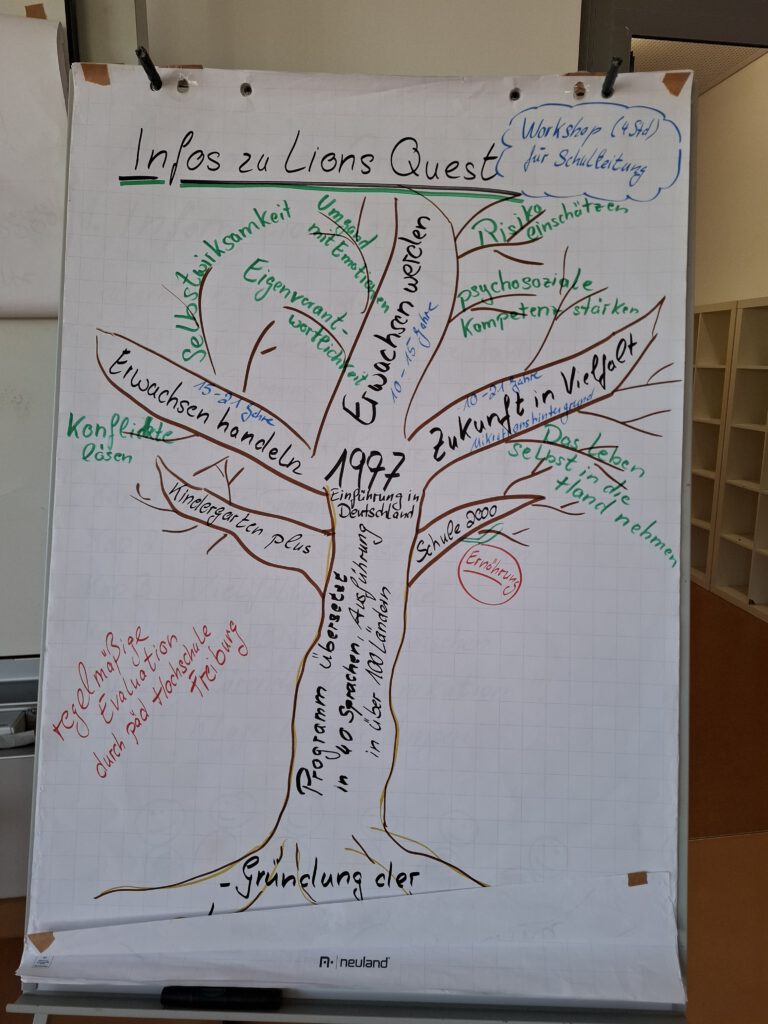 Infos zu Lions Quest
Workshop (4 Std)
für Schulleitung
Selbstwirksamkeit
Umgang
mit Emotionen
Eigenverant-
wortlichkeit
Erwachsen werden
10-15 Jahre
Risiko
einschätzen
psychosoziale
Kompetenz stärken
Erwachsen handeln
15-21 Jahre
Zukunft in Vielfalt
10-21 Jahre
Konflikte
lösen
Das Leben
selbst in die
Hand nehmen
Kindergarten plus
1997
Einführung in
Deutschland
Schule 2000
Ernährung
Programm übersetzt
in 40 Sprachen, Ausführung
in über 100 Ländern
regelmäßige
Evaluation
durch päd Hochschule
Freiburg
-Gründung der
neuland